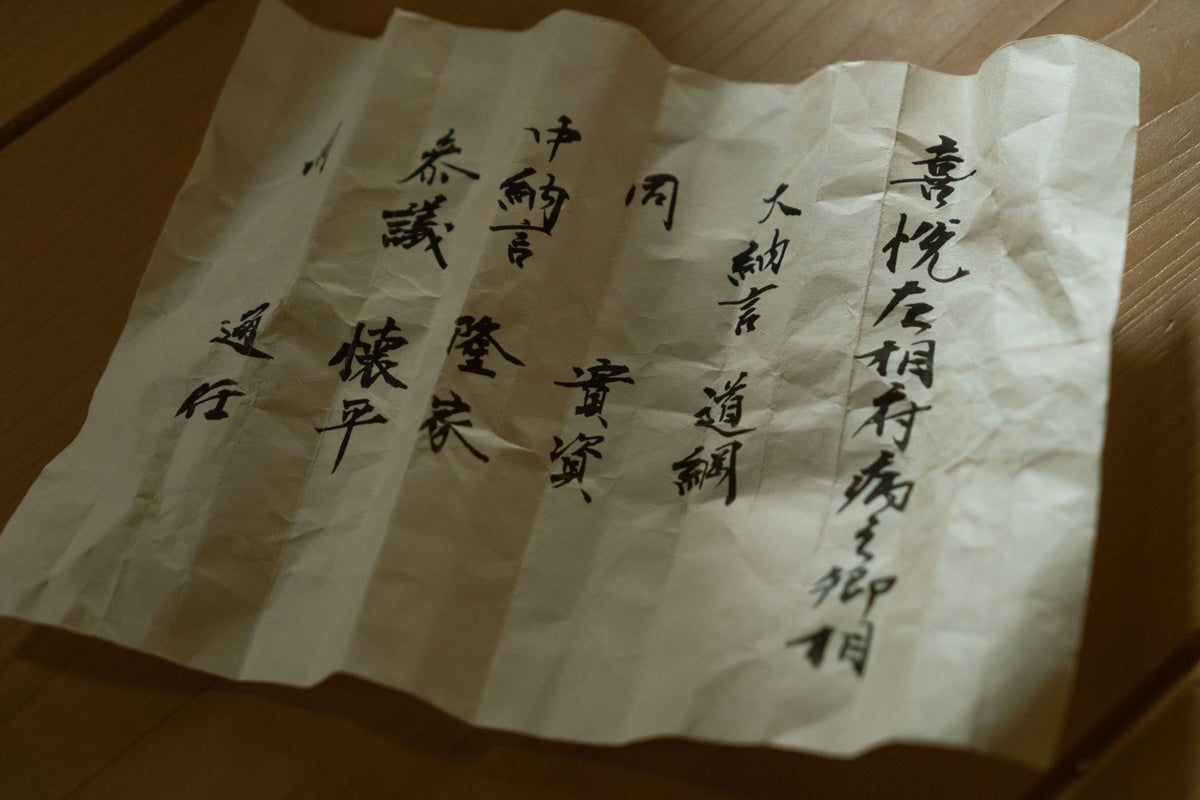 喜悦左相府病之卿相
大納言 道綱
同 實資
中納言 隆家
参議 懐平
〃 通任